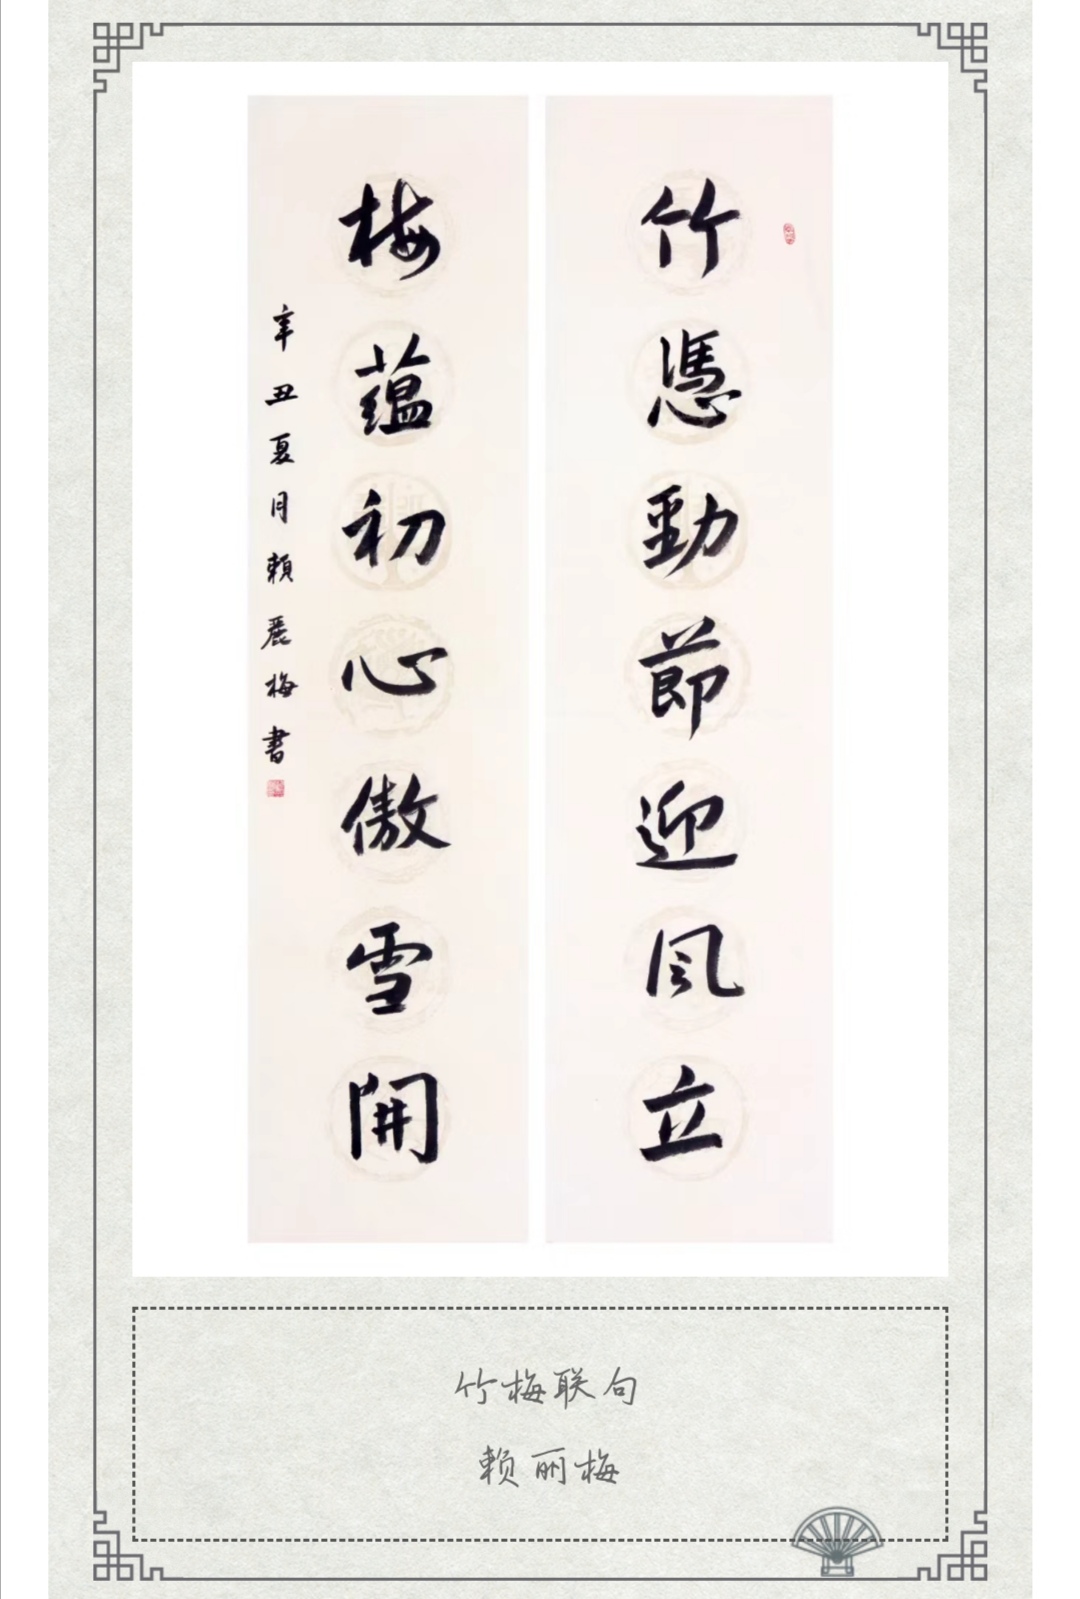 竹憑勁節迎风立
梅蕴初心傲雪開
辛丑夏月賴麗梅書
竹梅联句
赖丽梅